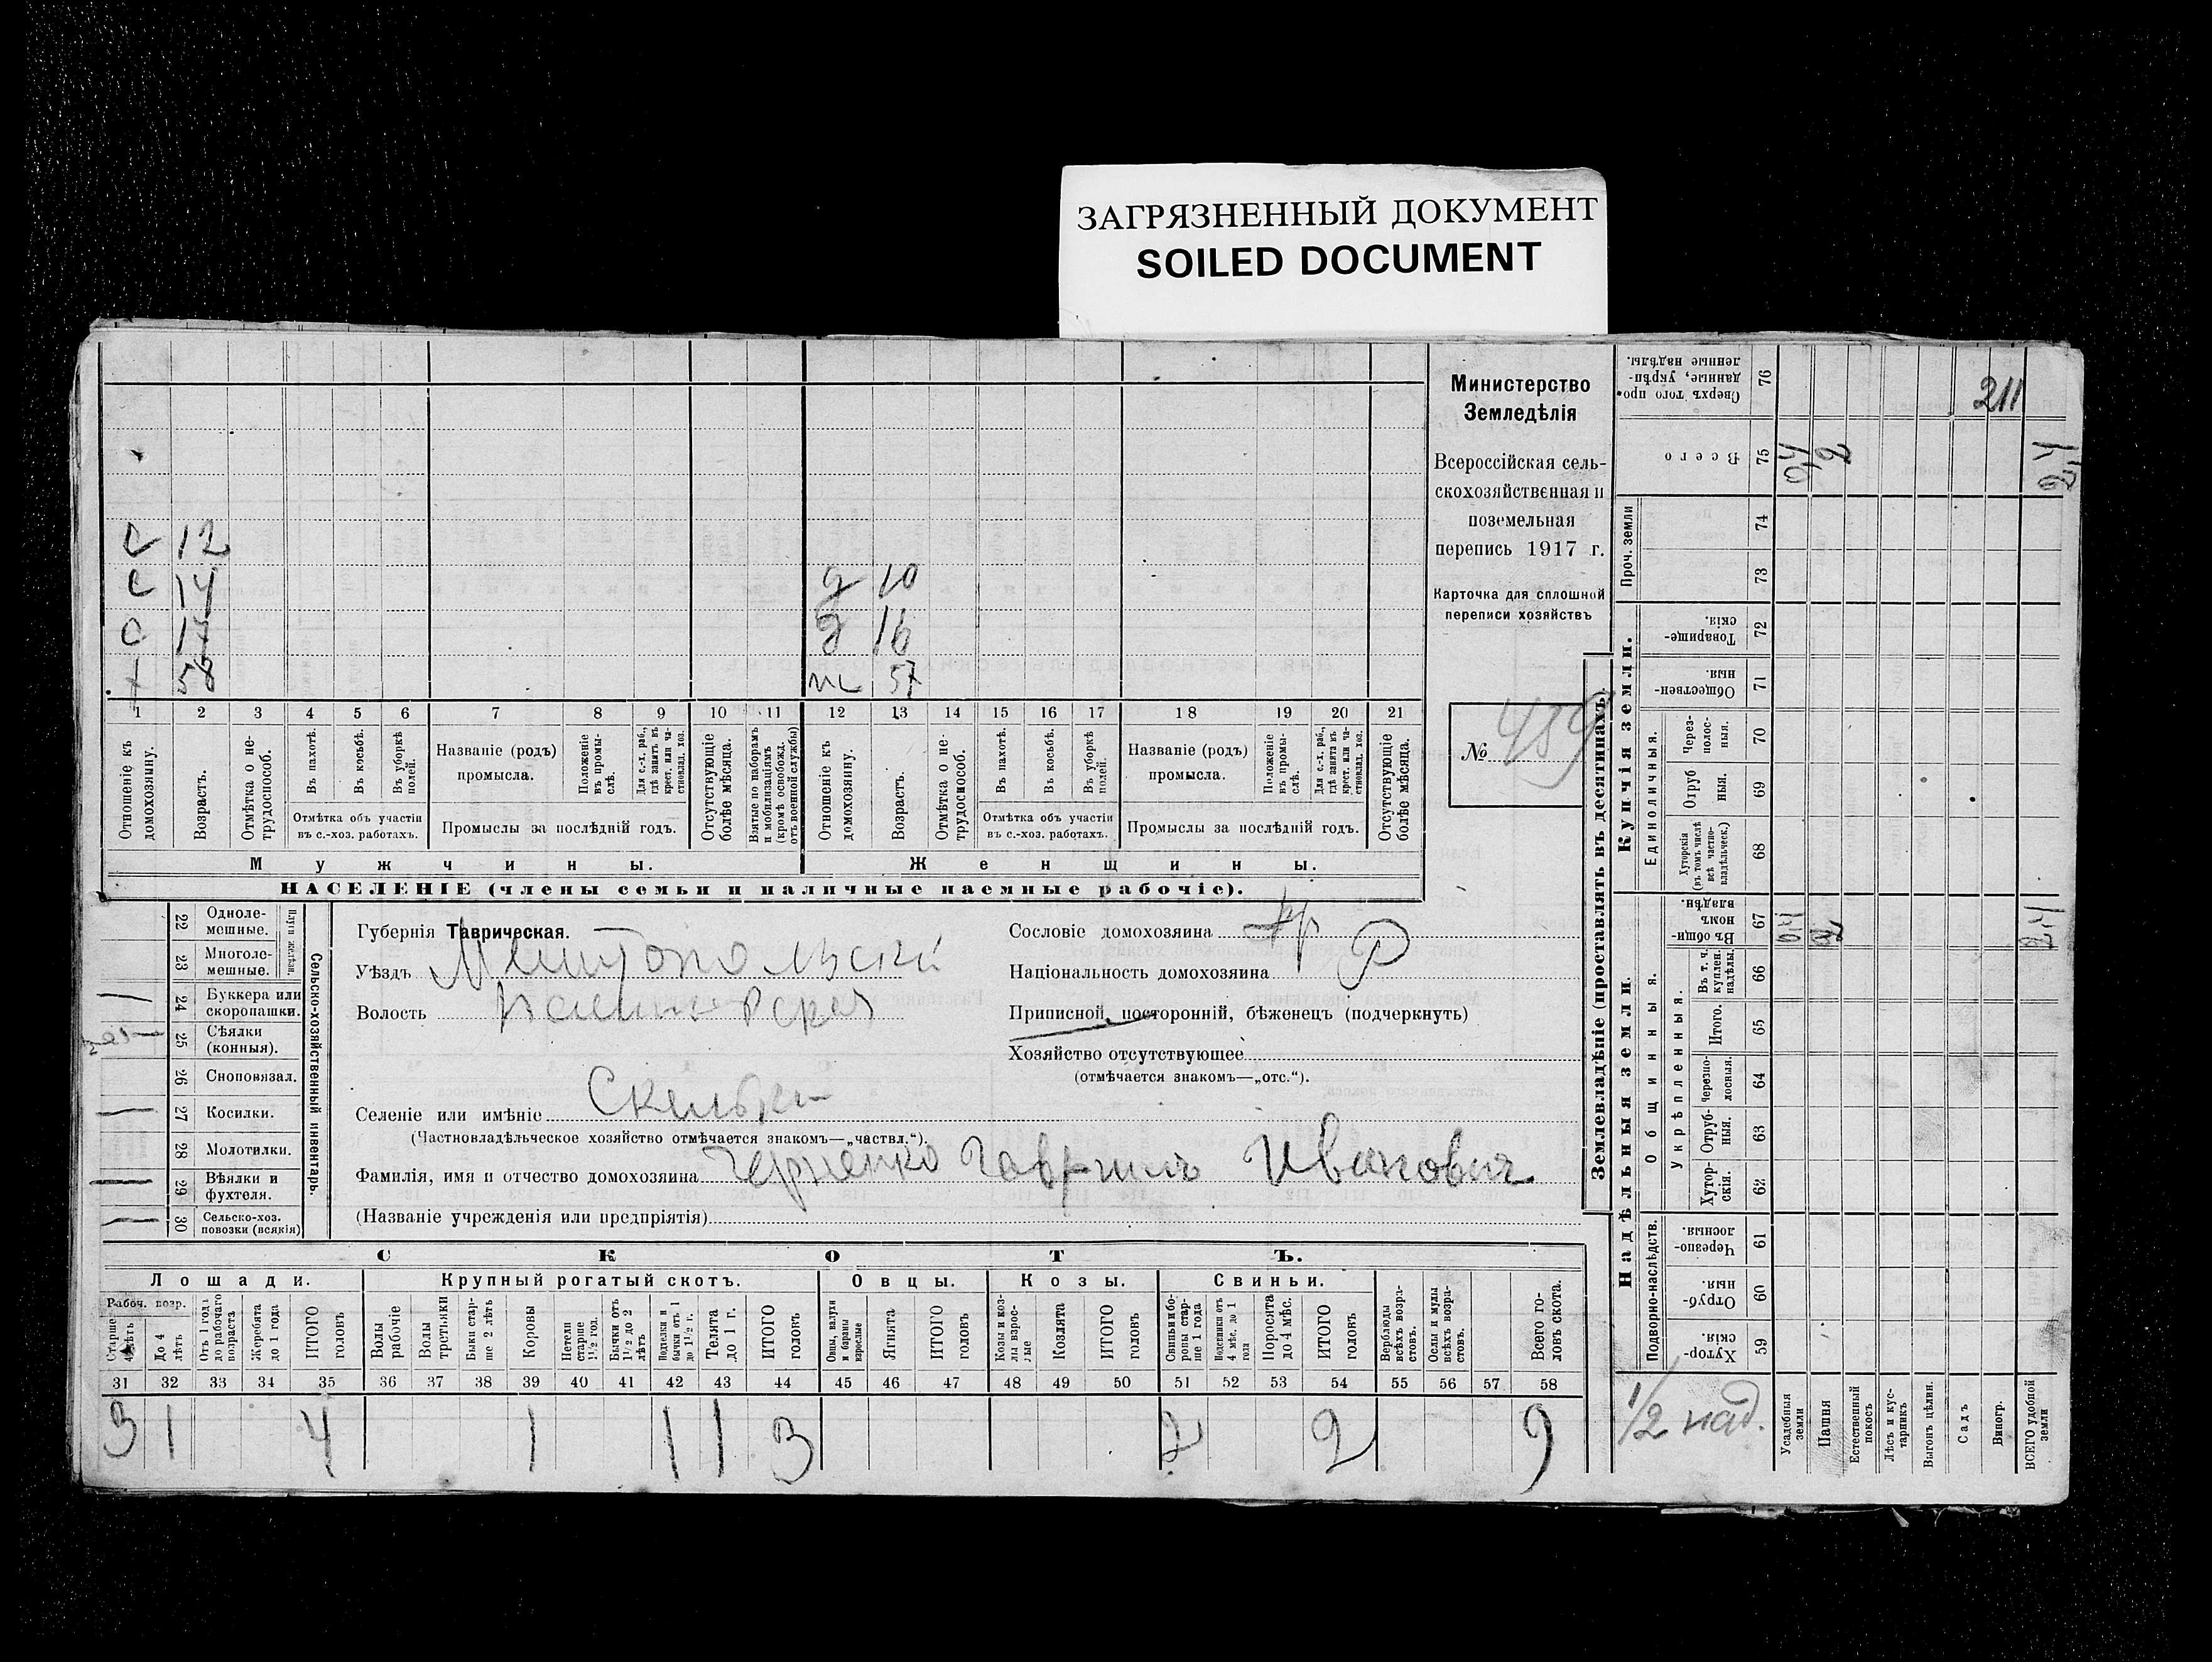 ЗАГРЯЗНЕННЫЙ ДОКУМЕНТ
SOILED DOCUMENT
211
Министерство
Земледѣлія
Всероссійская сель-
скохозяйственная и
поземельная
перепись 1917 г.
Карточка для сплошной
переписи хозяйствъ
№ 459
с 12
с 14
с 17
х 58
д 10
д 16
ж 57
1 2 3 4 5 6 7 8 9 10 11 12 13 14 15 16 17 18 19 20 21
Отношеніе къ домохозяину.
Возрастъ.
Отмѣтка о не-трудоспособ.
Въ пахотѣ.
Въ косьбѣ.
Въ уборкѣ полей.
Отмѣтка объ участіи
въ с.-хоз. работахъ.
Названіе (родъ)
промысла.
Положеніе въ промы-слѣ.
Для с.-х. раб., гдѣ занятъ въ крест. или ча-стновлад. хоз.
Промыслы за послѣдній годъ.
Отсутствующіе болѣе мѣсяца.
Взятые по наборамъ и мобилизаціямъ (кромѣ освобожд. отъ военной службы)
Отношеніе къ домохозяину.
Возрастъ.
Отмѣтка о не-трудоспособ.
Въ пахотѣ.
Въ косьбѣ.
Въ уборкѣ полей.
Отмѣтка объ участіи
въ с.-хоз. работахъ.
Названіе (родъ)
промысла.
Положеніе въ промы-слѣ.
Для с.-х. раб., гдѣ занята въ крест. или ча-стновлад. хоз.
Промыслы за послѣдній годъ.
Отсутствующіе болѣе мѣсяца.
Мужчины.
Женщины.
НАСЕЛЕНІЕ (члены семьи и наличные наемные рабочіе).
22 Одноле-мешные.
23 Многоле-мешные.
Плуги желѣзн.
24 Буккера или скоропашки.
25 Сѣялки (конныя).
26 Сноповязал.
27 Косилки.
28 Молотилки.
29 Вѣялки и фухтеля.
30 Сельско-хоз. повозки (всякія)
Сельско-хозяйственный инвентарь.
Губернія Таврическая.
Уѣздъ Мелитопольскій
Волость
Селеніе или имѣніе Скельки
(Частновладѣльческое хозяйство отмѣчается знакомъ—„частвл.“).
Фамилія, имя и отчество домохозяина Черненко Гавриилъ Иванович
(Названіе учрежденія или предпріятія)
Сословіе домохозяина кр
Національность домохозяина Р
Приписной, посторонній, бѣженецъ (подчеркнуть)
Хозяйство отсутствующее
(отмѣчается знакомъ—„отс.“).
СКОТЪ.
Лошади.
Крупный рогатый скотъ.
Овцы.
Козы.
Свиньи.
Рабоч. возр.
Старше 4 лѣтъ
До 4 лѣтъ
Отъ 1 года до рабочаго возраста
Жеребята до 1 года
ИТОГО головъ
Волы рабочіе
Волы третьяки
Быки стар-ше 2 лѣтъ
Коровы
Нетели старше 1½ год.
Бычки отъ 1½ до 2 лѣтъ
Подтелки и бычки отъ 1 до 1½ г.
Телята до 1 г.
ИТОГО головъ
Овцы, валухи и бараны взрослые
Ягнята
ИТОГО головъ
Козы и коз-лы взрос-лые
Козлята
ИТОГО головъ
Свиньи и бо-ровы стар-ше 1 года
Подсвинки отъ 4 мѣс. до 1 года
Поросята до 4 мѣс.
ИТОГО головъ
Верблюды всѣхъ возра-стовъ.
Ослы и мулы всѣхъ возра-стовъ.
Всего го-ловъ скота.
31 32 33 34 35 36 37 38 39 40 41 42 43 44 45 46 47 48 49 50 51 52 53 54 55 56 57 58
3 1 4 1 1 1 3 2 2 9
Землевладѣніе (проставлять въ десятинахъ)
Надѣльныя земли.
Купчія земли.
Проч. земли
Подворно-наслѣдств.
Общинныя.
Укрѣпленныя.
Единоличныя.
Хутор-скія. 59
Отруб-ныя. 60
Черезпо-лосныя. 61
Хутор-скія. 62
Отруб-ныя. 63
Черезпо-лосныя. 64
Итого. 65
Въ т. ч. куплен. надѣлы. 66
Въ общи-номъ владѣн. 67
Хуторскія (въ томъ числѣ всѣ частно-владѣльческ.) 68
Отруб ныя. 69
Через-полос-ныя. 70
Обществен-ныя. 71
Товарище-скія. 72
73
74
Всего 75
Сверхъ того про-данные, укрѣп-ленные надѣлы. 76
0,4 2 2,4
0,4 2 2,4
1/2 над.
Усадебныя земли
Пашня
Естественный покосъ
Лѣсъ и кус-тарникъ
Выгонъ цѣлин.
Садъ
Виногр.
ВСЕГО удобной земли